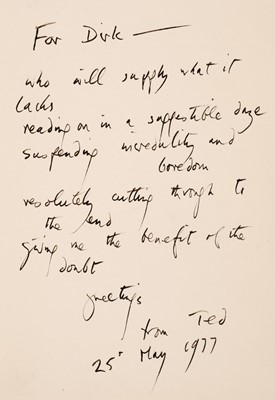 For Dirk —
who will supply what it
lacks
reading on in a suggestible daze
suspending incredulity and
boredom
resolutely cutting through to
the end
giving me the benefit of the
doubt
greetings
from Ted
25 May 1977